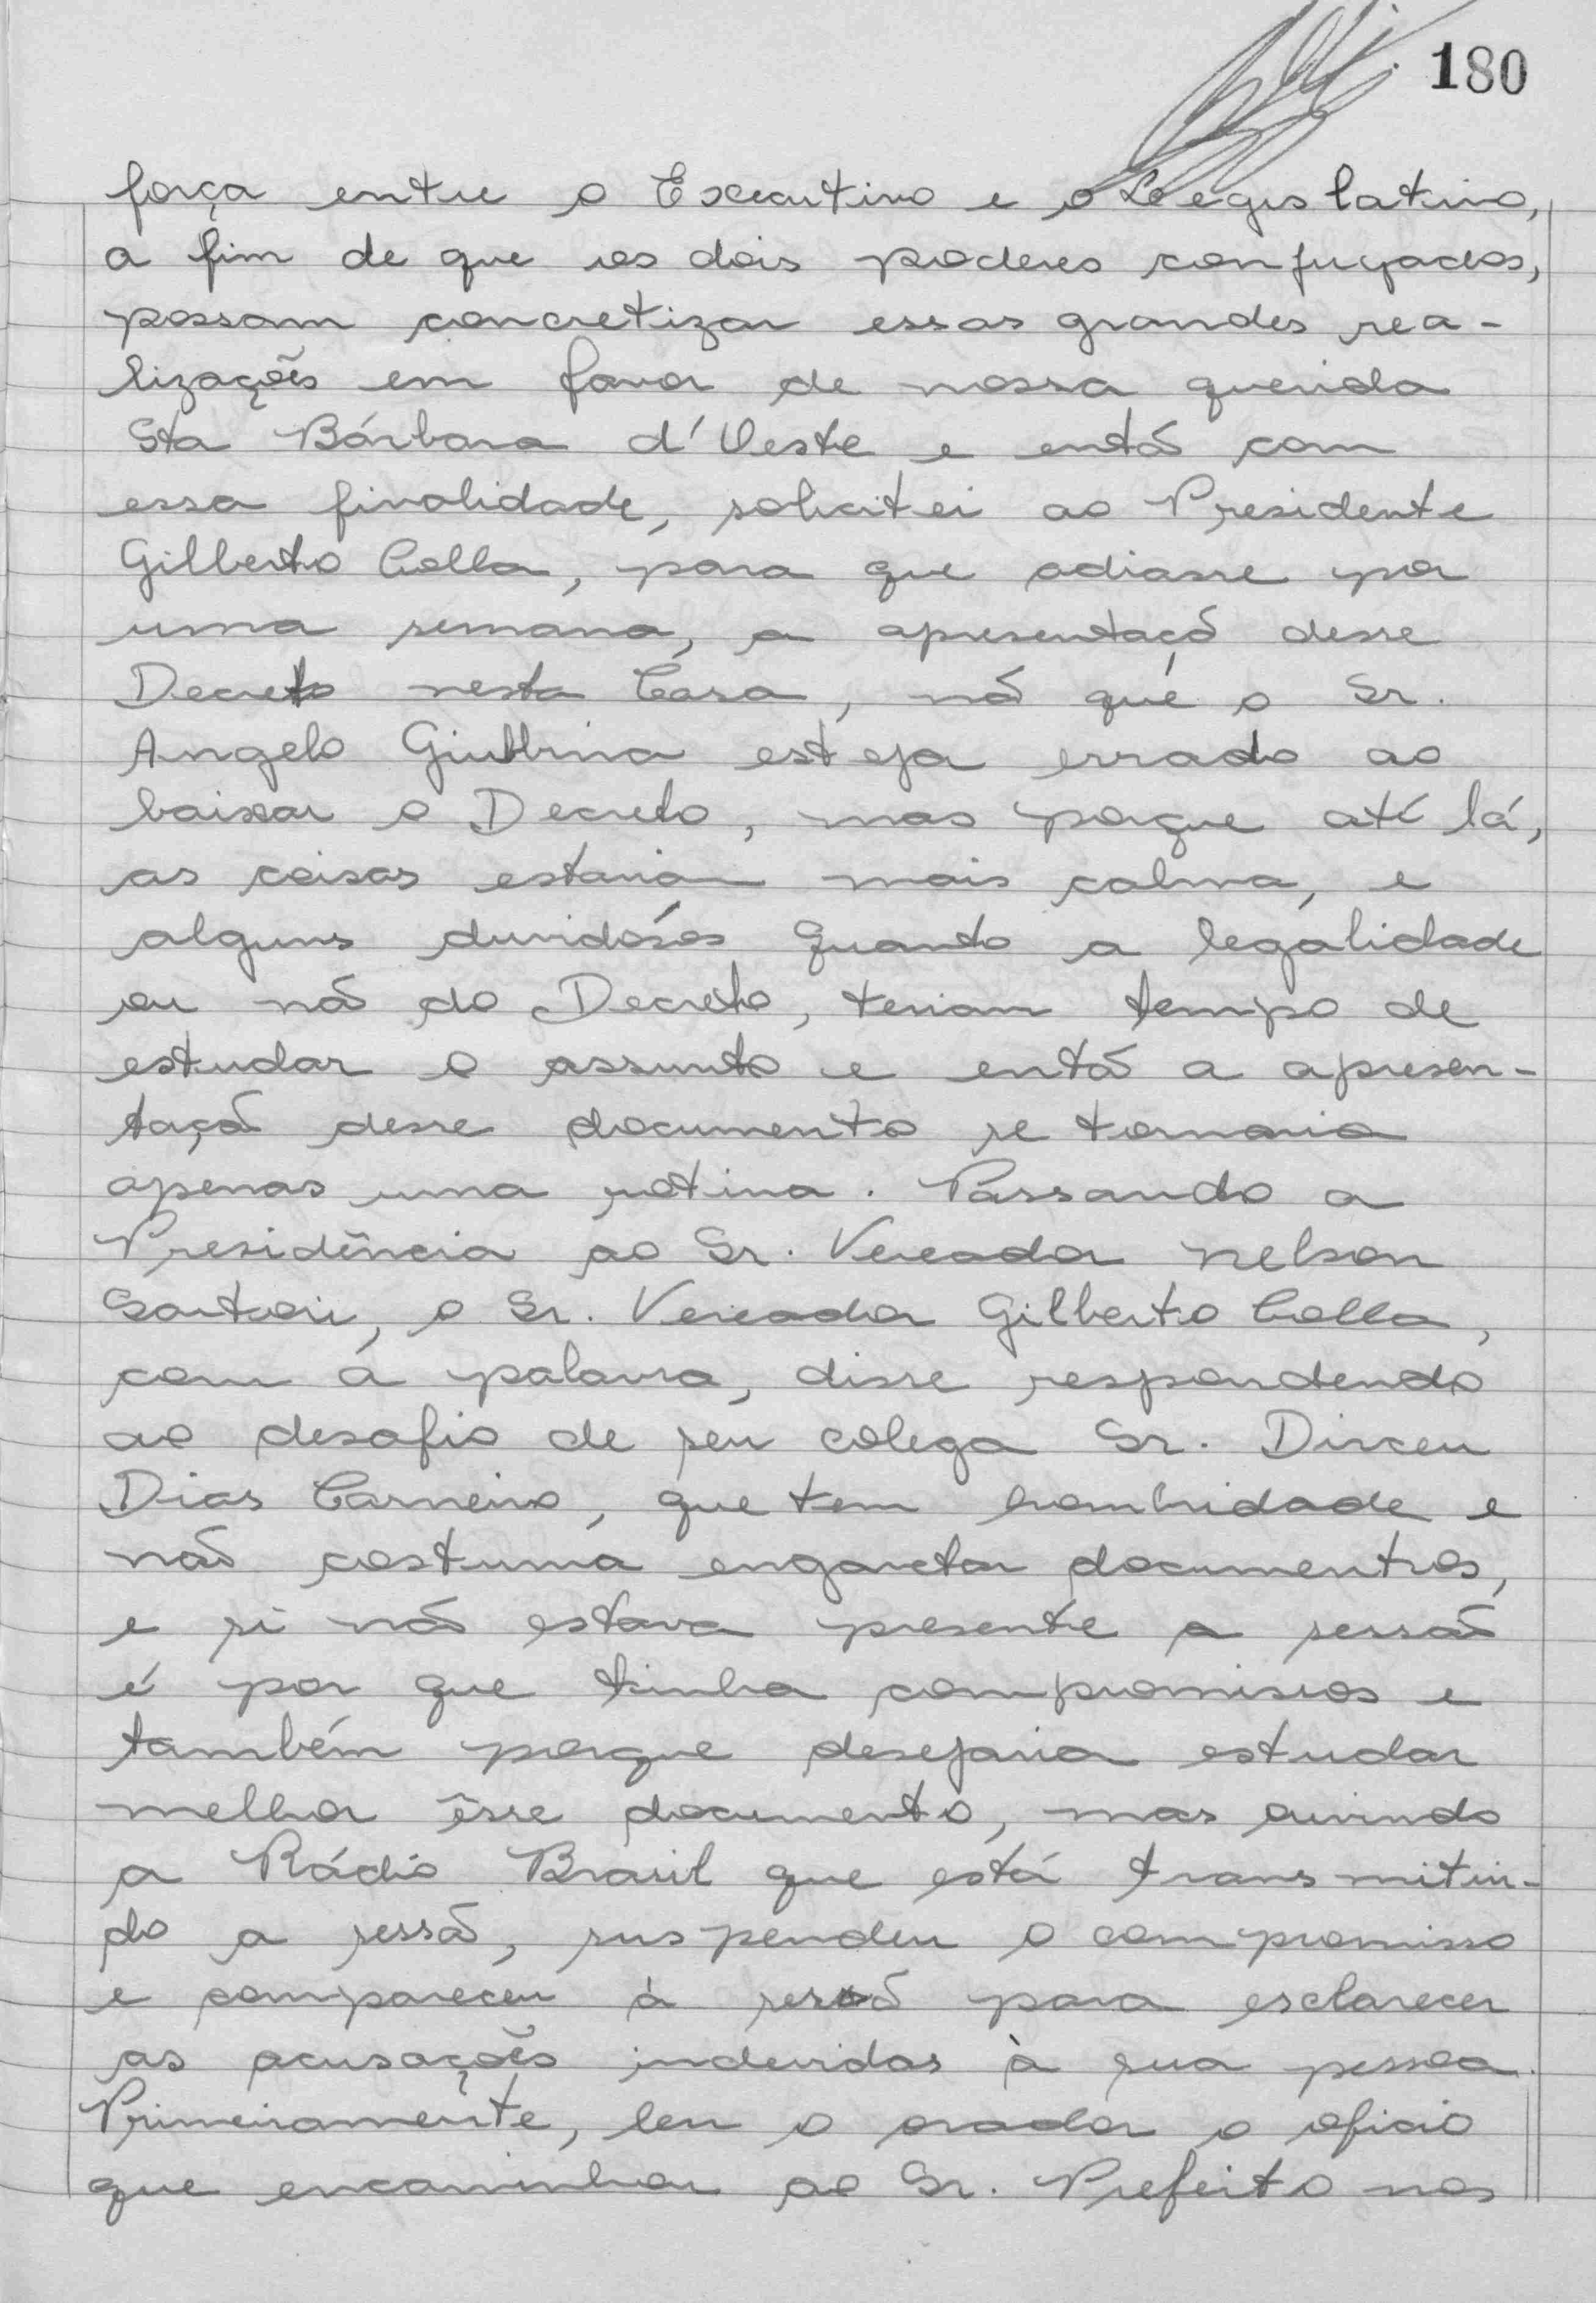 180
força entre o Executivo e o Legislativo,
a fim de que os dois poderes conjugados,
possam concretizar essas grandes rea-
lizações em favor de nossa querida
Sta Bárbara d'Oeste e entã com
essa finalidade, solicitei ao Presidente
Gilberto Colla, para que adiasse por
uma semana, a apresentaçã desse
Decreto nesta Casa, nã que o Sr.
Angelo Giubbina esteja errado ao
baixar o Decreto, mas porque até lá,
as coisas estariam mais calma, e
alguns duvidósos quanto a legalidade
ou nã do Decreto, teriam tempo de
estudar o assunto e entã a apresen-
taçã desse documento se tornaria
apenas uma rotina. Passando a
Presidência ao Sr. Vereador Nelson
Sartori, o Sr. Vereador Gilberto Colla,
com a palavra, disse respondendo
ao desafio de seu colega Sr. Dirceu
Dias Carneiro, que tem hombridade e
não costuma engavetar documentos,
e si nã estava presente a sessão
é por que tinha compromissos e
também porque desejaria estudar
melhor êsse documento, mas ouvindo
a Rádio Brasil que está transmitin-
do a sessã, suspendeu o compromisso
e compareceu à sessã para esclarecer
as acusações indevidas à sua pessoa.
Primeiramente, leu o orador o oficio
que encaminhou ao Sr. Prefeito nos